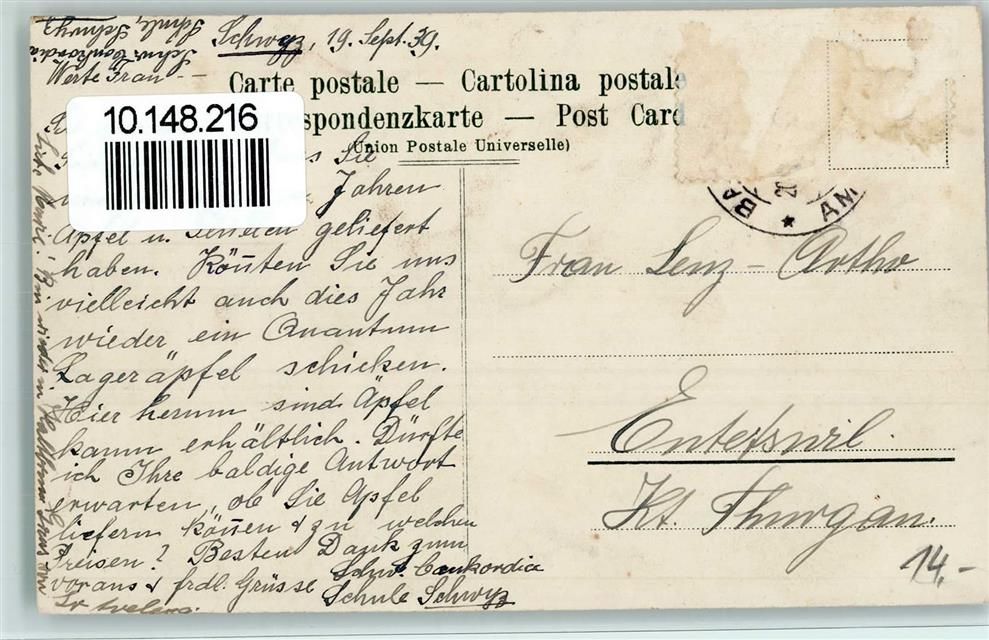 Schwyz, 19. Sept. 39.
Werte Frau
Carte postale — Cartolina postale
spondenzkarte — Post Card
(Union Postale Universelle)
10.148.216
Sie
Jahren
Äpfel u. geliefert
haben. Könten Sie uns
vielleicht auch dies Jahr
wieder ein Quantum
Lageräpfel schicken.
Hier herum sind Äpfel
kaum erhältlich. Dürfte
ich Ihre baldige Antwort
erwarten, ob Sie Äpfel
liefern können & zu welchen
Preisen? Besten Dank zum
voraus & frdl. Grüsse
Schw. Conkordia
Schule Schwyz
BA
AM
Frau Lenz - Artho
Enteſswil.
Kt. Thurgau.
14.-